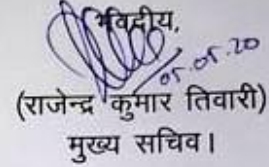 भवदीय,
05.05.20
(राजेन्द्र कुमार तिवारी)
मुख्य सचिव।